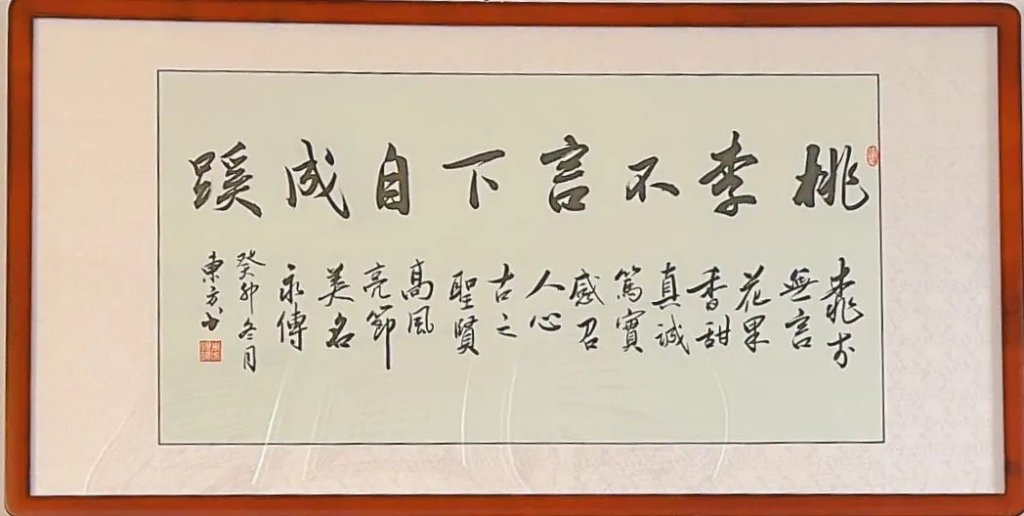 桃李不言下自成蹊
桃
無言
花果
香甜
真誠
篤實
感召
人心
古之
聖賢
高風
亮節
美名
永傳
癸卯冬月
東方书